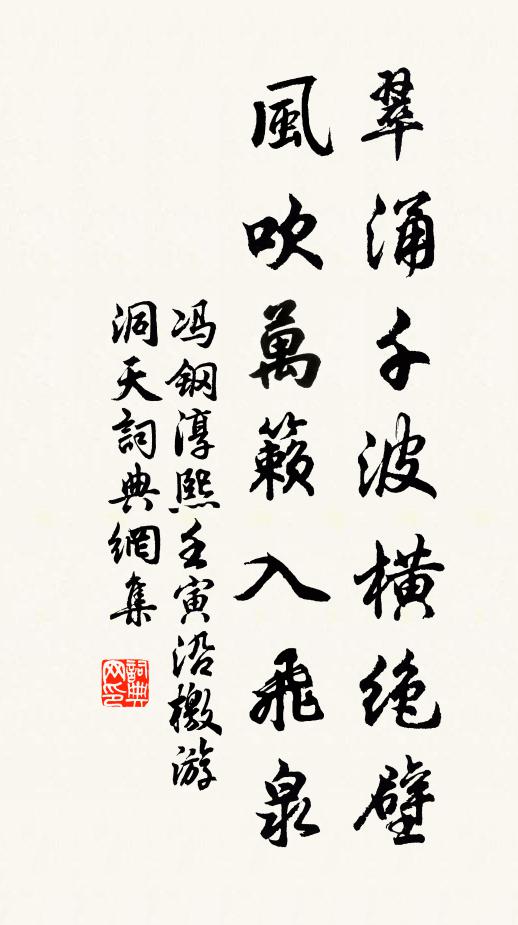 翠涌千波橫绝壁
風吹萬籟入飛泉
冯钢淳熙壬寅沿檄游
洞天詞典網集
詞典网印